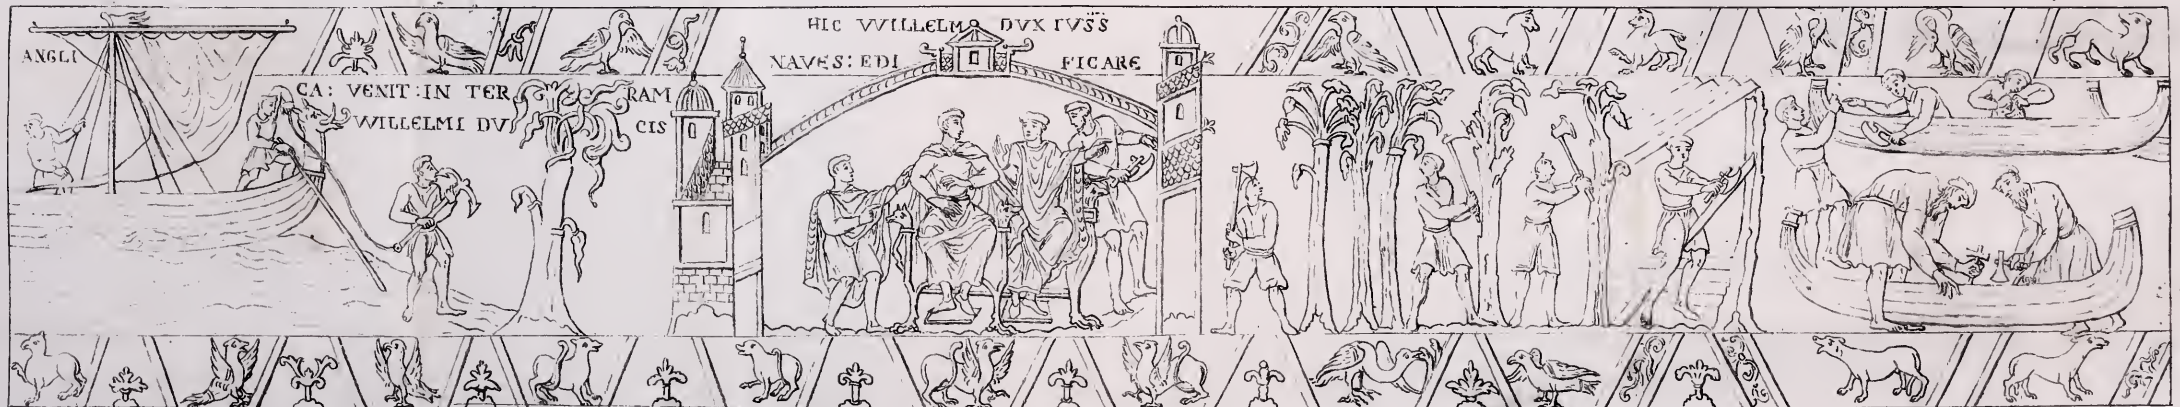 ANGLI
CA: VENIT: IN TERRAM
WILLELMI DVCIS
HIC WILLELM DVX IVSS
NAVES: EDIFICARE